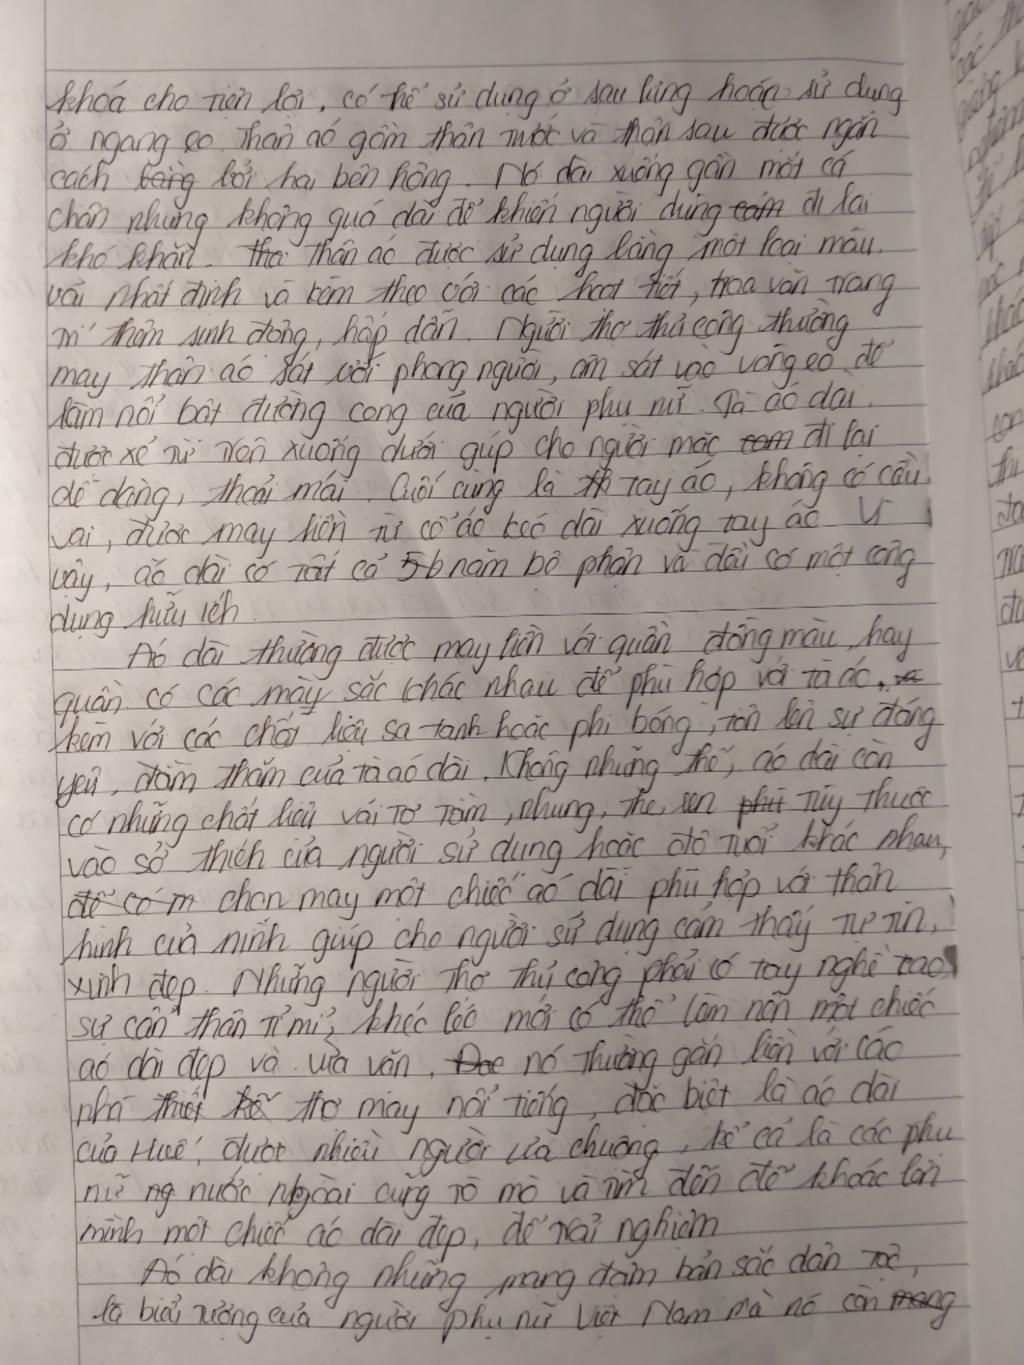 khoá cho tiện lợi, có thể sử dụng ở sau lưng hoặc sử dụng
ở ngang eo. Thân áo gồm thân trước và thân sau được ngăn
cách bởi hai bên hông. Nó dài xuống gần mắt cá
chân nhưng không quá dài để khiến người dùng đi lại
khó khăn. Thân áo được sử dụng bằng một loại màu
vải nhất định và kèm theo với các hoạ tiết, hoa văn trang
trí thêm sinh động, hấp dẫn. Người thợ thủ công thường
may thân áo sát với phong người, ôm sát vào vòng eo để
làm nổi bật đường cong của người phụ nữ. Tà áo dài
được xẻ từ trên xuống dưới giúp cho người mặc đi lại
dễ dàng, thoải mái. Cuối cùng là tay áo, không có cầu
vai, được may liền từ cổ áo kéo dài xuống tay áo. Vì
vậy, áo dài có tất cả năm bộ phận và đều có một công
dụng hữu ích.
Áo dài thường được may liền với quần đồng màu, hay
quần có các màu sắc khác nhau để phù hợp với tà áo,
kèm với các chất liệu sa-tanh hoặc phi bóng, tôn lên sự đáng
yêu, đằm thắm của tà áo dài. Không những thế, áo dài còn
có những chất liệu vải tơ tằm, nhung, the, sen tùy thuộc
vào sở thích của người sử dụng hoặc độ tuổi khác nhau,
chọn may một chiếc áo dài phù hợp với thân
hình của mình giúp cho người sử dụng cảm thấy tự tin,
xinh đẹp. Những người thợ thủ công phải có tay nghề cao,
sự cẩn thận tỉ mỉ, khéo léo mới có thể làm nên một chiếc
áo dài đẹp và vừa vặn. nó thường gắn liền với các
nhà thiết kế thợ may nổi tiếng, đặc biệt là áo dài
của Huế, được nhiều người ưa chuộng, kể cả là các phụ
nữ nước Ngoài cũng tò mò và tìm đến để khoác lên
mình một chiếc áo dài đẹp, để trải nghiệm
Áo dài không những mang đậm bản sắc dân tộc,
là biểu tượng của người phụ nữ Việt Nam mà nó còn